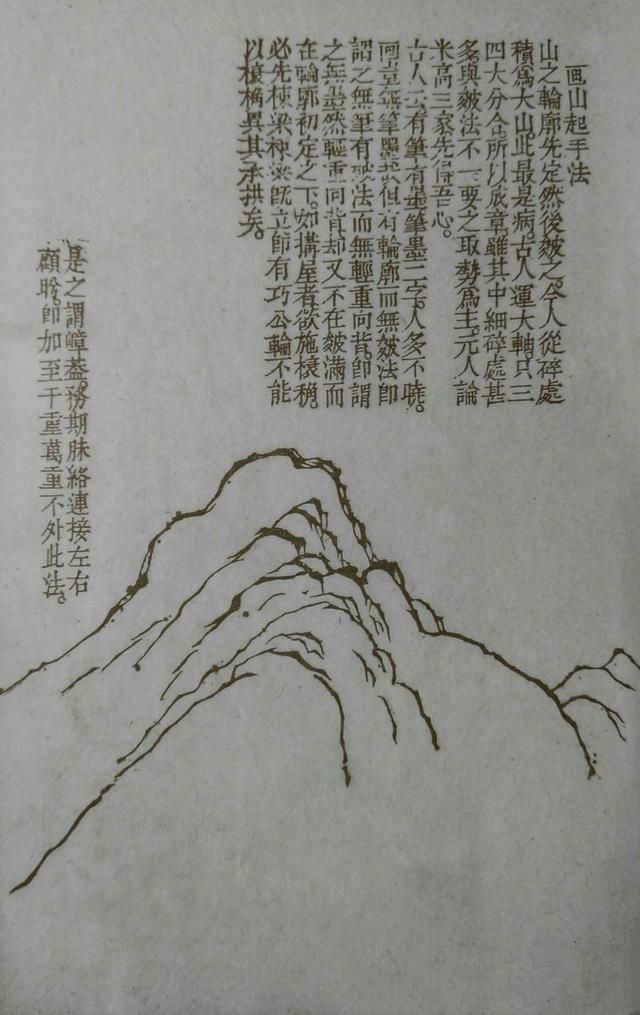 画山起手法
山之輪廓先定然後皴之。今人從碎處
積爲大山此最是病。古人運大軸。只三
四大分合。所以成章。雖其中細碎處甚
多與皴法不一要之取勢爲主。元人論
米高三家先得吾心。
古人云有筆有墨。筆墨二字。人多不曉。
画豈無筆墨哉但有輪廓而無皴法即
謂之無筆有皴法而無輕重向背。即謂
之無墨然輕重向背却又不在皴滿而
在輪廓初定之下。如搆屋者欲施榱桷。
必先棟梁棟梁既立即有巧公輪不能
以榱桷異其承拱矣。
是之謂嶂蓋。務期脉絡連接左右
顧盼。即加至千重萬重不外此法。